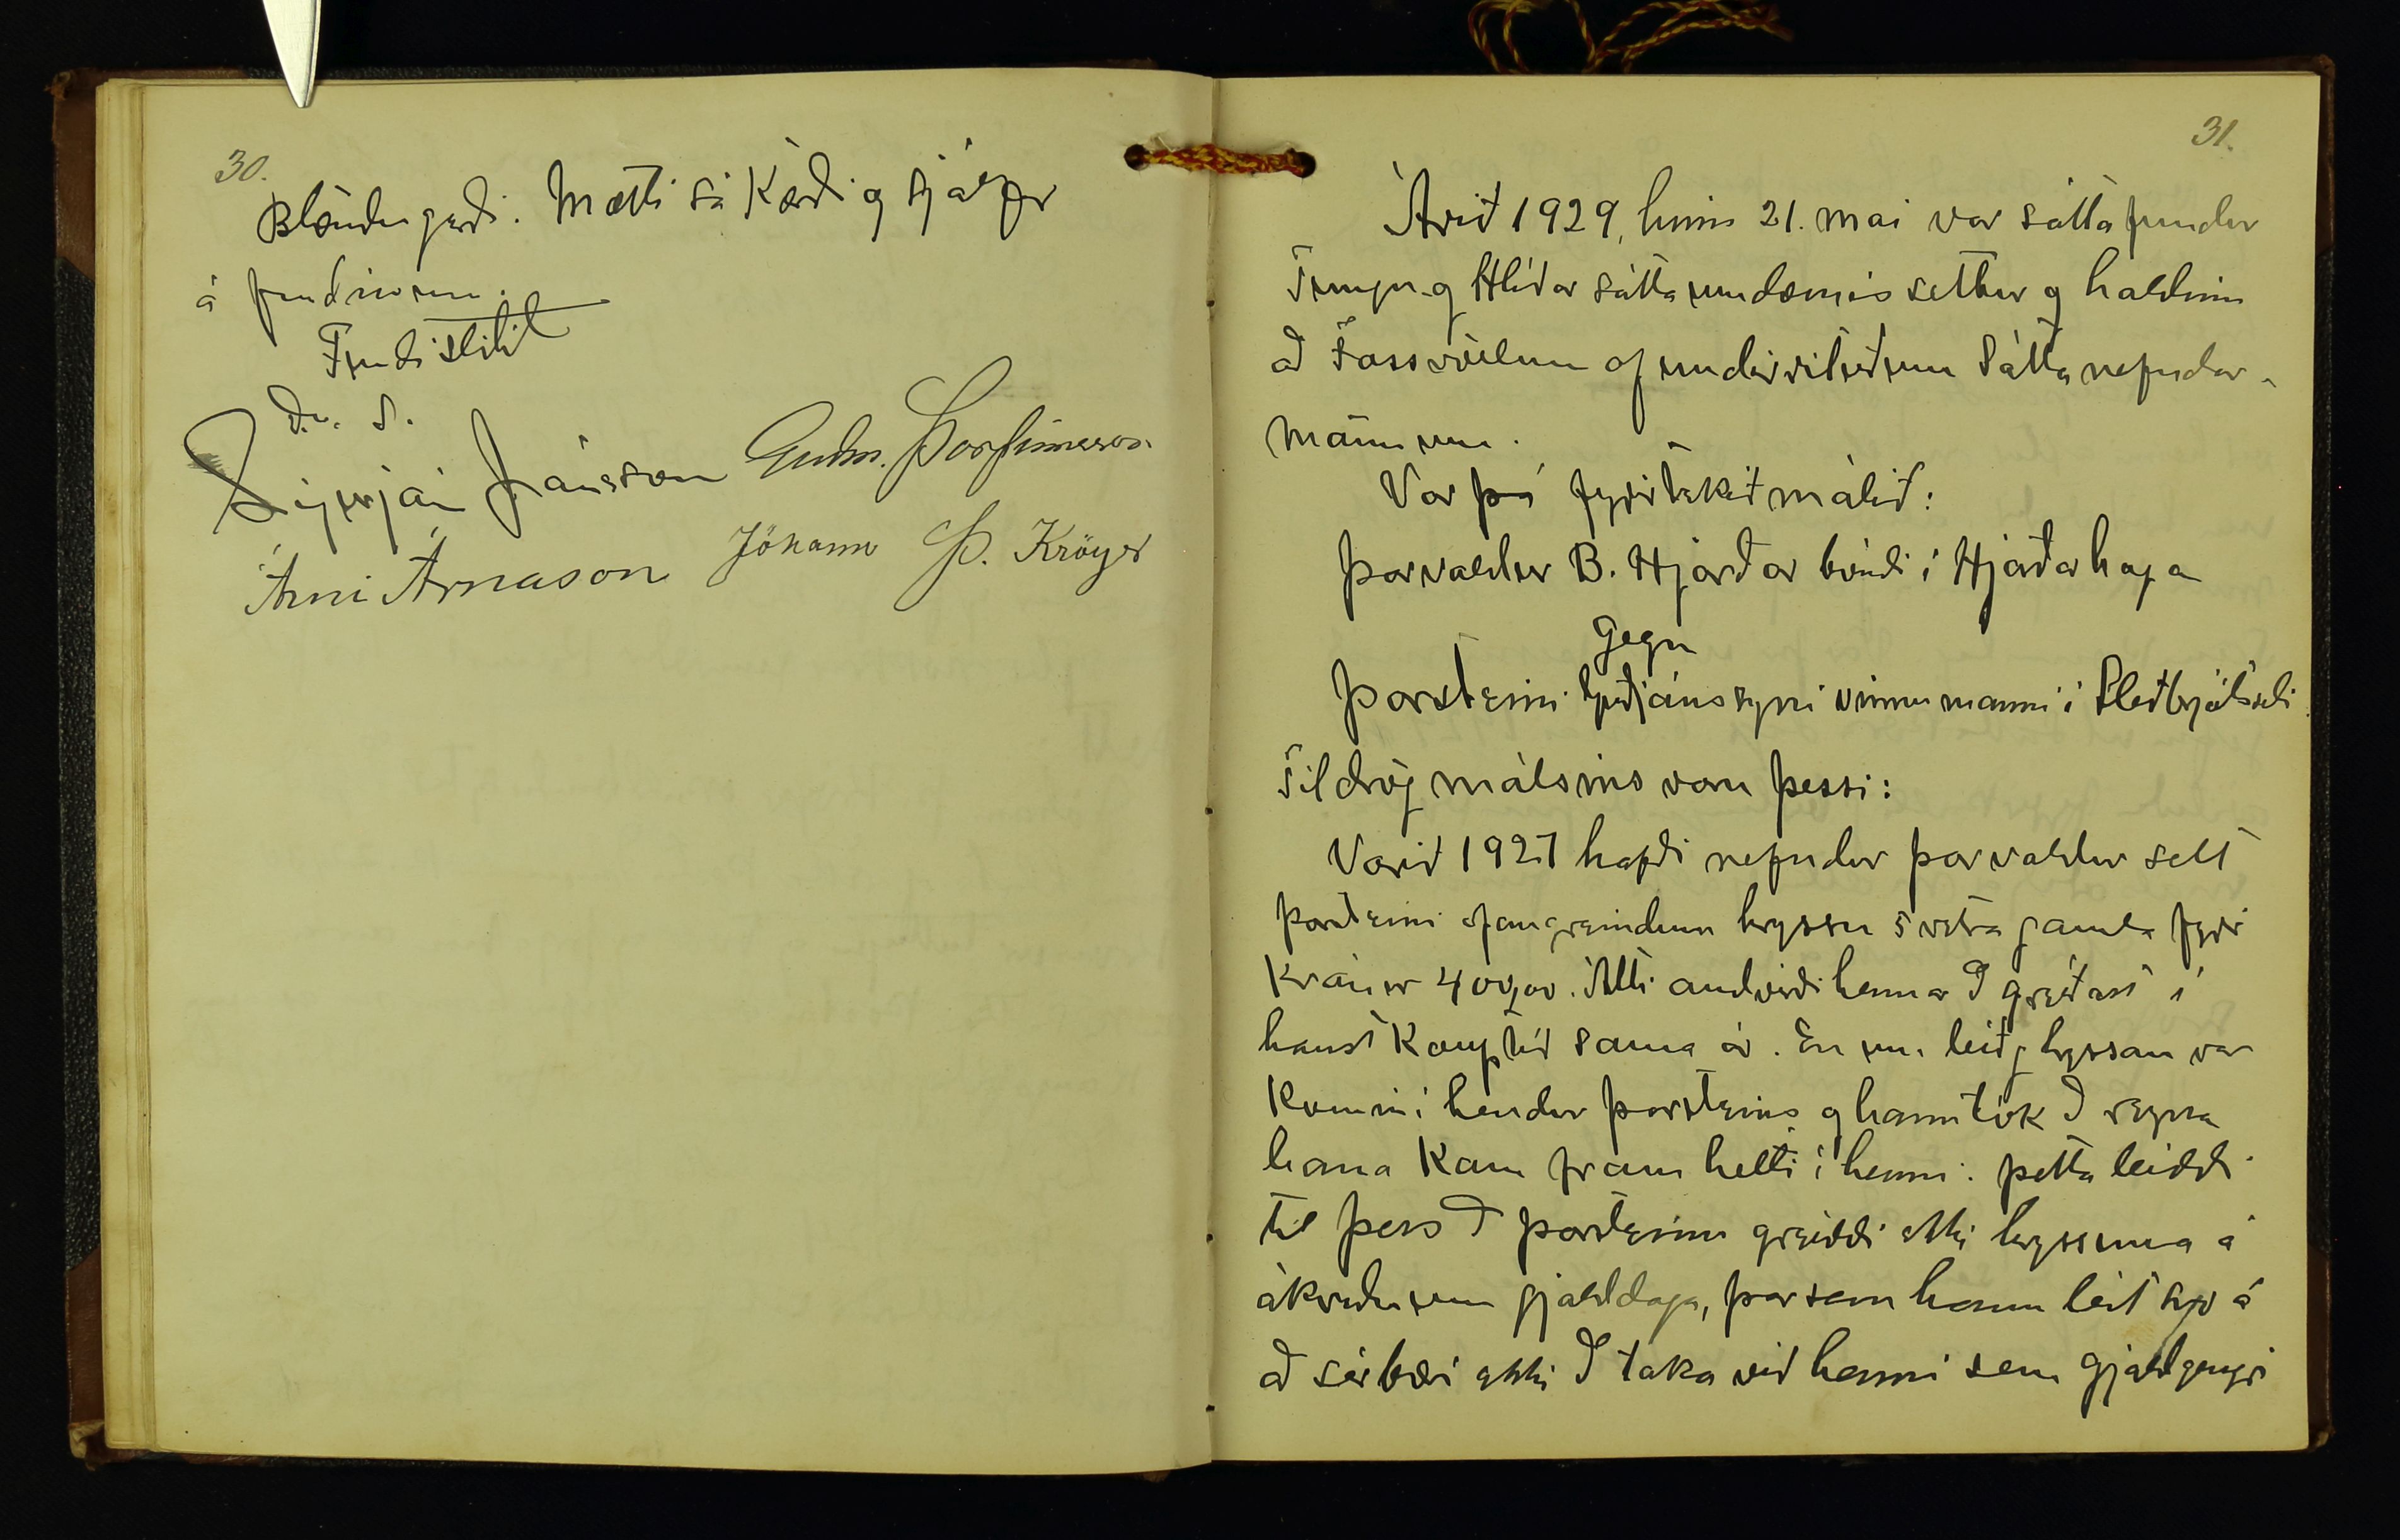 30.
Blöndugerði. Mætti sá kærði og sjálfur
á fundinum.
Fundi slitið
D. u. s.
Sigurjón Jónsson Guðm. Þorfinnsson
Árni Árnason Jóhann Þ. Kröyer
31.
Árið 1929, hinn 21. mai var sáttafundur
Tungu- og Hlíðar sáttaumdæmis settur og haldinn
að Fossvöllum af undirrituðum sáttanefndar-
mönnum.
Var þá fyrirtekið málið:
Þorvaldur B. Hjarðar bóndi í Hjarðarhaga
gegn
Þorsteini Guðjónssyni vinnumanni í Sleðbrjótsseli
Tildrög málsins voru þessi:
Vorið 1927 hafði nefndur Þorvaldur selt
Þorsteini ofangreindum hryssu 5 vetra gamla fyrir
Krónur 400,00. Átti andvirði hennar að greiðast í
haustkauptíð sama ár. En um leið og hryssan var
komin í hendur Þorsteins og hann tók að reyna
hana kom fram helti í henni. Þetta leiddi
til þess að Þorsteinn greiddi ekki hryssuna á
ákveðnum gjalddaga, þar sem hann leit svo á
að sér bæri ekki að taka við henni sem gjaldgengri